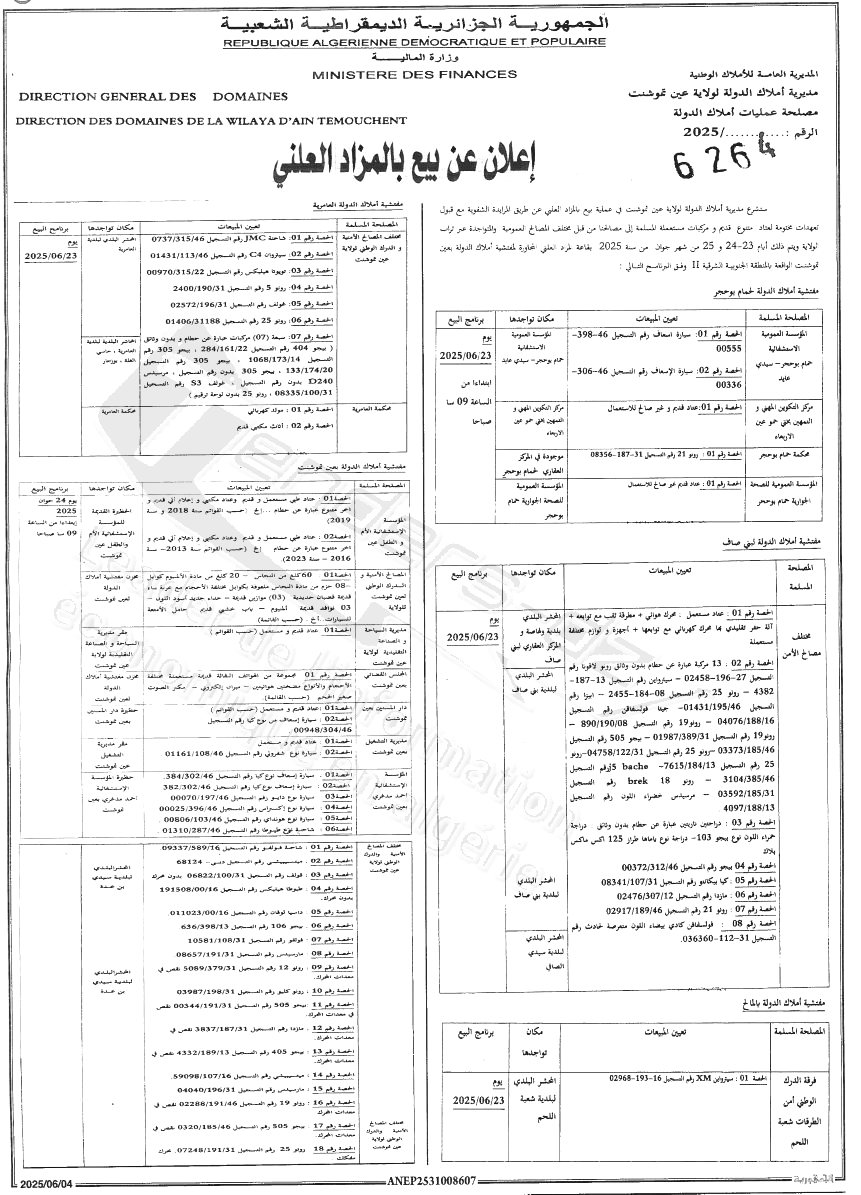 الجمهورية الجزائرية الديمقراطية الشعبية
REPUBLIQUE ALGERIENNE DEMOCRATIQUE ET POPULAIRE
وزارة المالية
MINISTERE DES FINANCES
المديرية العامة للأملاك الوطنية
مديرية أملاك الدولة لولاية عين تموشنت
مصلحة عمليات أملاك الدولة
الرقم :............/2025
6264
DIRECTION GENERAL DES DOMAINES
DIRECTION DES DOMAINES DE LA WILAYA D'AIN TEMOUCHENT
إعلان عن بيع بالمزاد العلني
ستشرع مديرية أملاك الدولة لولاية عين تموشنت في عملية بيع بالمزاد العلني عن طريق المزايدة الشفوية مع قبول
تعهدات مختومة لعتاد متنوع قديم و مركبات مستعملة المسلمة إلى مصالحنا من قبل مختلف المصالح العمومية والمتواجدة عبر تراب
ولاية ويتم ذلك أيام 23-24 و 25 من شهر جوان من سنة 2025 بقاعة المجاورة لمفتشية أملاك الدولة بعين
تموشنت الواقعة بالمنطقة الجنوبية الشرقية II وفق البرنامج التالي :
مفتشية أملاك الدولة لحمام بوحجر
المصلحة المسلمة
تعيين المبيعات
مكان تواجدها
برنامج البيع
المؤسسة العمومية الاستشفائية حمام بوحجر- سيدي عايد
الحصة رقم 01: سيارة اسعاف رقم التسجيل 46-398-00555
الحصة رقم 02: سيارة الإسعاف رقم التسجيل 46-306-00336
المؤسسة العمومية الاستشفائية حمام بوحجر- سيدي عايد
يوم 2025/06/23
ابتداءا من الساعة 09 سا صباحا
مركز التكوين المهني و التمهين بختي حمو عين الاربعاء
الحصة رقم 01:عتاد قديم و غير صالح للاستعمال
مركز التكوين المهني و التمهين بختي حمو عين الاربعاء
محكمة حمام بوحجر
الحصة رقم 01 : رونو 21 رقم التسجيل 31-187-08356
موجودة في المركز العقاري لحمام بوحجر
المؤسسة العمومية للصحة الجوارية حمام بوحجر
الحصة رقم 01:عتاد قديم غير صالح للاستعمال
المؤسسة العمومية للصحة الجوارية حمام بوحجر
مفتشية أملاك الدولة لبني صاف
المصلحة المسلمة
تعيين المبيعات
مكان تواجدها
برنامج البيع
مختلف مصالح الأمن
يوم 2025/06/23
المحشر البلدي بلدية ولهاصة و المركز العقاري لبني صاف
الحصة رقم 01 : عتاد مستعمل : محرك هوائي + مطرقة ثقب مع توابعه +
آلة حفر تقليدي بها محرك كهربائي مع توابعها + أجهزة و لوازم مختلفة
مستعملة
المحشر البلدي بلدية بني صاف
الحصة رقم 02 : 13 مركبة عبارة عن حطام بدون وثائق رونو لاقونا رقم
التسجيل 27-196-02458 – سيتروابن رقم التسجيل 13-187-
4382 – رونو 25 رقم التسجيل 08-184-2455 –
رقم التسجيل 01431/195/46– جيتا فولسفاقن رقم التسجيل
04076/188/16 – رونو19 رقم التسجيل 890/190/08 –
رونو19 رقم التسجيل 01987/389/31– بيجو 505 رقم التسجيل
03373/185/46–رونو 25 رقم التسجيل 04758/122/31–رونو
25 رقم التسجيل 7615/184/13– bache 5رقم التسجيل
3104/385/46 – رونو 18 brek رقم التسجيل
03592/185/31 – مرسيدس خضراء اللون رقم التسجيل
4097/188/13
الحصة رقم 03 : دراجتين ناريتين عبارة عن حطام بدون وثائق دراجة
حمراء اللون نوع بيجو 103- دراجة نوع ياماها طراز 125 اكس ماكس
بلاك
المحشر البلدي لبلدية بني صاف
الحصة رقم 04 بيجو رقم التسجيل 00372/312/46
الحصة رقم 05 : كيا بيكانتو رقم التسجيل 08341/107/31
الحصة رقم 06 : مازدا رقم التسجيل 02476/307/12
الحصة رقم 07 : رونو 21 رقم التسجيل 02917/189/46
المحشر البلدي لبلدية سيدي الصافي
الحصة رقم 08 : فولسفاقن كادي بيضاء اللون متعرضة لحادث رقم
التسجيل 31-112-036360.
مفتشية أملاك الدولة بالمالح
المصلحة المسلمة
تعيين المبيعات
مكان تواجدها
برنامج البيع
فرقة الدرك الوطني أمن الطرقات شعبة اللحم
الحصة رقم 01 : سيتروابن XM رقم التسجيل 16-193-02968
المحشر البلدي لبلدية شعبة اللحم
يوم 2025/06/23
مفتشية أملاك الدولة العامرية
المصلحة المسلمة
تعيين المبيعات
مكان تواجدها
برنامج البيع
مختلف المصالح الأمنية و الدرك الوطني لولاية عين تموشنت
المحشر البلدي لبلدية العامرية
يوم 2025/06/23
الحصة رقم 01: شاحنة JMC رقم التسجيل 0737/315/46
الحصة رقم 02: سيتروان C4 رقم التسجيل 01431/113/46
الحصة رقم 03: تويوتا هيليكس رقم التسجيل 00970/315/22
الحصة رقم 04: رونو 5 رقم التسجيل 2400/190/31
الحصة رقم 05: غولف رقم التسجيل 02572/196/31
الحصة رقم 06: رونو 25 رقم التسجيل 01406/31188
الحصة رقم 07: سبعة (07) مركبات عبارة عن حطام و بدون وثائق
( بيجو 404 رقم التسجيل 284/161/22 ، بيجو 305 رقم
التسجيل 1068/173/14 ، بيجو 305 رقم التسجيل
133/174/20 ، بيجو 305 بدون رقم التسجيل ، مرسيدس
D240 بدون رقم التسجيل ، غولف S3 رقم التسجيل
08335/100/31 ، رونو 25 بدون لوحة ترقيم )
محكمة العامرية
الحصة رقم 01 : مولد كهربائي
الحصة رقم 02 : أثاث مكتبي قديم
محكمة العامرية
مفتشية أملاك الدولة بعين تموشنت
المصلحة المسلمة
تعيين المبيعات
مكان تواجدها
برنامج البيع
المؤسسة الإستشفائية الأم و الطفل عين تموشنت
الحصة01 : عتاد طبي مستعمل و قديم وعتاد مكتبي و إعلام آلي قديم و
اخر متنوع عبارة عن حطام ...إلخ (حسب القوائم سنة 2018 و سنة
2019)
الحصة02 : عتاد طبي مستعمل و قديم وعتاد مكتبي و إعلام آلي قديم و
اخر متنوع عبارة عن حطام إلخ (حسب القوائم سنة 2013– سنة
2016 – سنة 2023)
الحظيرة القديمة للمؤسسة الإستشفائية الأم والطفل عين تموشنت
يوم 24 جوان 2025
إبتداءا من الساعة 09 سا صباحا
المصالح الأمنية و الدرك الوطني للولاية
الحصة01 : 60كلغ من النحاس – 20 كلغ من مادة الألمنيوم كوابل
مخزن مفتشية أملاك الدولة لعين تموشنت
مديرية السياحة و الصناعة التقليدية لولاية عين تموشنت
الحصة01 عتاد قديم و مستعمل (حسب القوائم )
مقر مديرية السياحة و الصناعة التقليدية لولاية عين تموشنت
المجلس القضائي بعين تموشنت
الحصة رقم 01 مجموعة من الهواتف النقالة قديمة مستعملة مختلفة
الأحجام والأنواع مضختين هوائيتين – ميزان إلكتروني – مكبر الصوت
صغير الحجم (حسب القائمة)
مخزن مفتشية أملاك الدولة لعين تموشنت
دار المسنين بعين تموشنت
الحصة01 : عتاد قديم و مستعمل ( حسب القوائم )
الحصة02 : سيارة إسعاف من نوع كيا رقم التسجيل
00948/304/46
حظيرة دار المسنين بعين تموشنت
مديرية التشغيل بعين تموشنت
الحصة01 : عتاد قديم و مستعمل
الحصة02 : سيارة نوع شفرولي رقم التسجيل 01161/108/46
مقر مديرية التشغيل عين تموشنت
المؤسسة الإستشفائية احمد مدغري بعين تموشنت
الحصة01 : سيارة إسعاف نوع كيا رقم التسجيل 384/302/46.
الحصة02 : سيارة إسعاف نوع كيا رقم التسجيل 382/302/46
الحصة03 : سيارة نوع دايو رقم التسجيل 00070/197/46
الحصة04 : سيارة نوع إكسراس رقم التسجيل 00025/396/46
الحصة05 : سيارة نوع هونداي رقم التسجيل 00806/103/46
الحصة06 : سيارة نوع طيوطا رقم التسجيل 01310/287/46
حظيرة المؤسسة الإستشفائية احمد مدغري بعين تموشنت
مختلف المصالح الأمنية والدرك الوطني لولاية عين تموشنت
المحشر البلدي لبلدية سيدي بن عدة
الحصة رقم 01 : شاحنة فولفو رقم التسجيل 09337/589/16
الحصة رقم 02 : ميتسيبيشي رقم التسجيل دبي– 68124
الحصة رقم 03 : غولف رقم التسجيل 06822/100/31 بدون محرك
الحصة رقم 04 : طيوطا هيليكس رقم التسجيل 191508/00/16
بدون محرك.
الحصة رقم 05 : داسيا لوقان رقم التسجيل 011023/00/16.
الحصة رقم 06 : بيجو 106 رقم التسجيل 636/398/13
الحصة رقم 07 : فولفو رقم التسجيل 10581/108/31
الحصة رقم 08 : مارسيدس رقم التسجيل 08657/191/31
الحصة رقم 09 : رونو 12 رقم التسجيل 5089/379/31 نقص في
معدات المحرك.
الحصة رقم 10 : رونو كليو رقم التسجيل 03987/198/31
الحصة رقم 11 : بيجو 505 رقم التسجيل 00344/191/31 نقص
في معدات المحرك.
الحصة رقم 12 : مازدا رقم التسجيل 3837/187/31 نقص في
معدات المحرك.
الحصة رقم 13 : بيجو 405 رقم التسجيل 4332/189/13 نقص في
معدات المحرك.
الحصة رقم 14 : ميتسيبيشي رقم التسجيل 59098/107/16.
الحصة رقم 15 : مارسيدس رقم التسجيل 04040/196/31
الحصة رقم 16 : رونو 19 رقم التسجيل 02288/191/46 نقص في
معدات المحرك.
الحصة رقم 17 : بيجو 505 رقم التسجيل 0320/185/46 نقص في
معدات المحرك.
الحصة رقم 18 : رونو 25 رقم التسجيل 07248/191/31. محرك
مفكك
المحشر البلدي لبلدية سيدي بن عدة
مختلف المصالح الأمنية والدرك الوطني لولاية عين تموشنت
2025/06/04
ANEP2531008607
الجمهورية